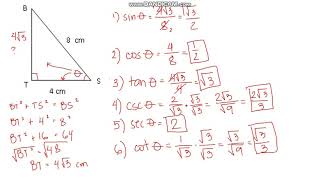 B
4√3
?
8 cm
θ
T
4
S
BT² + TS² = BS²
BT² + 4² = 8²
BT² + 16 = 64
√BT² = √48
BT = 4√3 cm
1) sin θ = 4√3/8₂ = √3/2
2) cos θ = 4/8 = 1/2
3) tan θ = 4√3/4 = √3
4) csc θ = 2/√3 · √3/√3 = 2√3/√9 = 2√3/3
5) sec θ = 2
6) cot θ = 1/√3 · √3/√3 = √3/√9 = √3/3